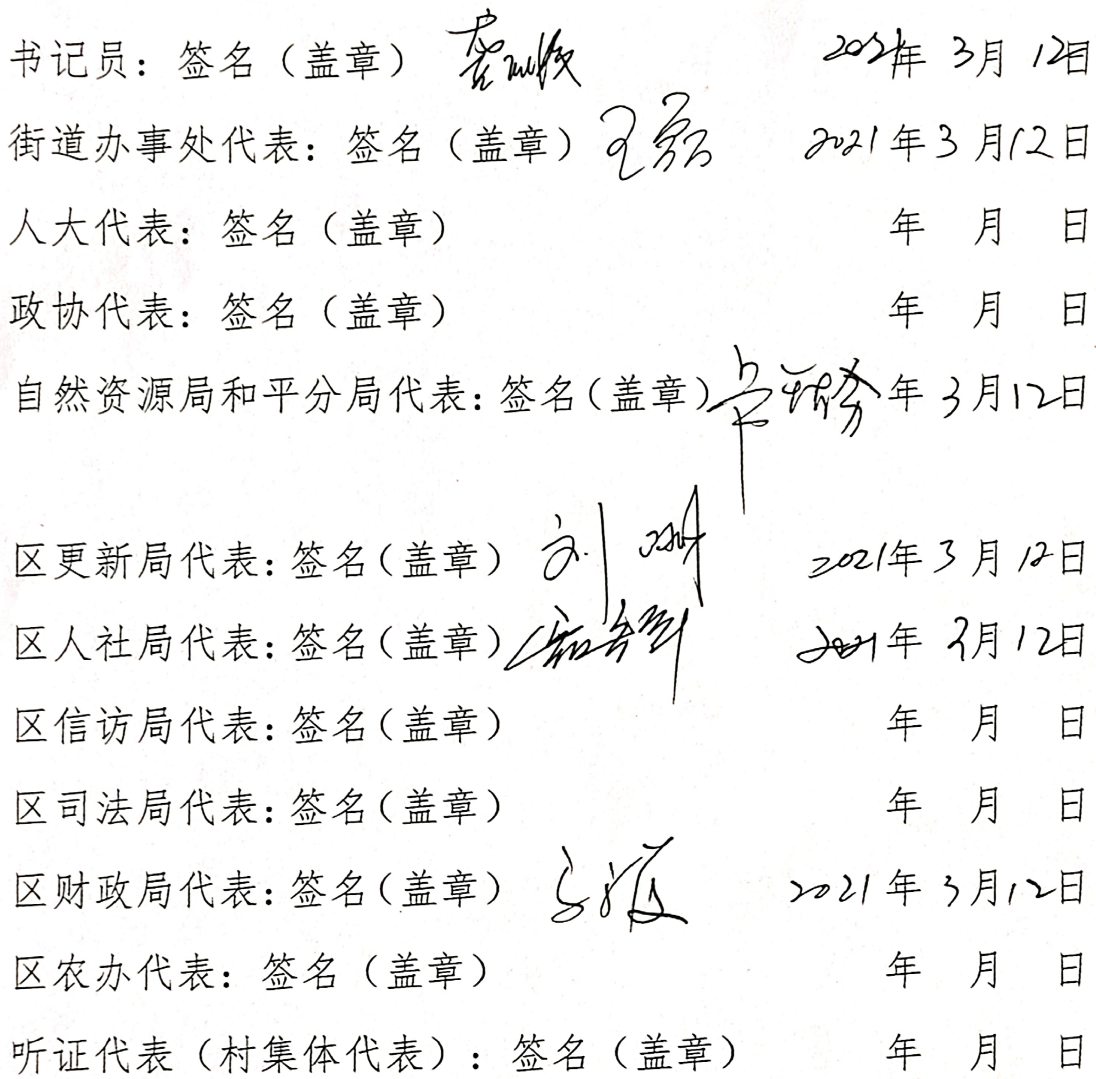 书记员：签名（盖章） 2021年 3月 12日
街道办事处代表：签名（盖章）王 2021年3月12日
人大代表：签名（盖章） 年 月 日
政协代表：签名（盖章） 年 月 日
自然资源局和平分局代表：签名（盖章） 年 3月12日
区更新局代表：签名（盖章）刘 2021年3月12日
区人社局代表：签名（盖章） 2021年3月12日
区信访局代表：签名（盖章） 年 月 日
区司法局代表：签名（盖章） 年 月 日
区财政局代表：签名（盖章） 2021年3月12日
区农办代表：签名（盖章） 年 月 日
听证代表（村集体代表）：签名（盖章） 年 月 日